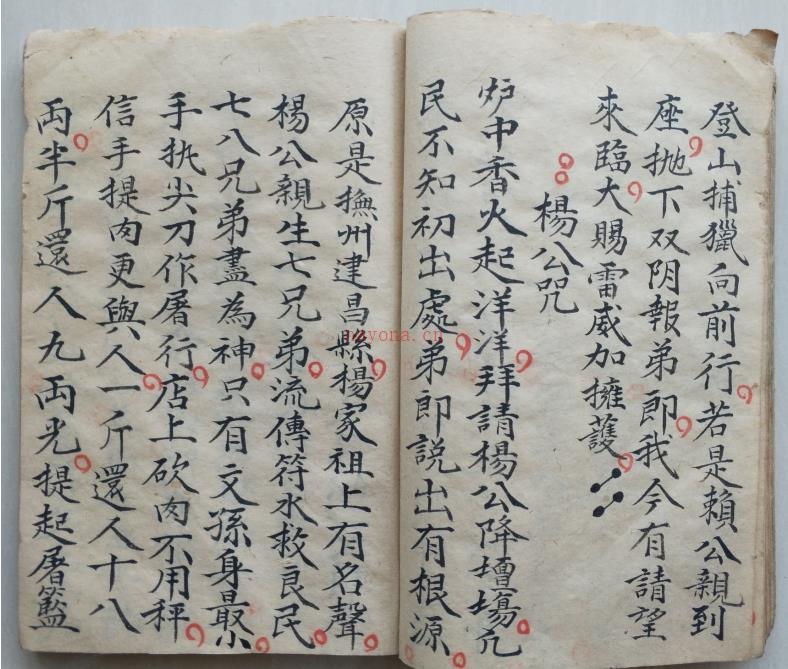 登山捕獵向前行若是賴公親到
座抛下双阴報弟郎我今有請望
來臨大賜雷威加擁護
楊公咒
炉中香火起洋洋拜請楊公降壇場凢
民不知初出處弟郎説出有根源
原是撫州建昌縣楊家祖上有名聲
楊公親生七兄弟流傳符水救良民
七八兄弟盡為神只有文孫身最小
手执尖刀作屠行店上砍肉不用秤
信手提肉更與人一斤還人十八
両半斤還人九両光提起屠籃
nayona.cn